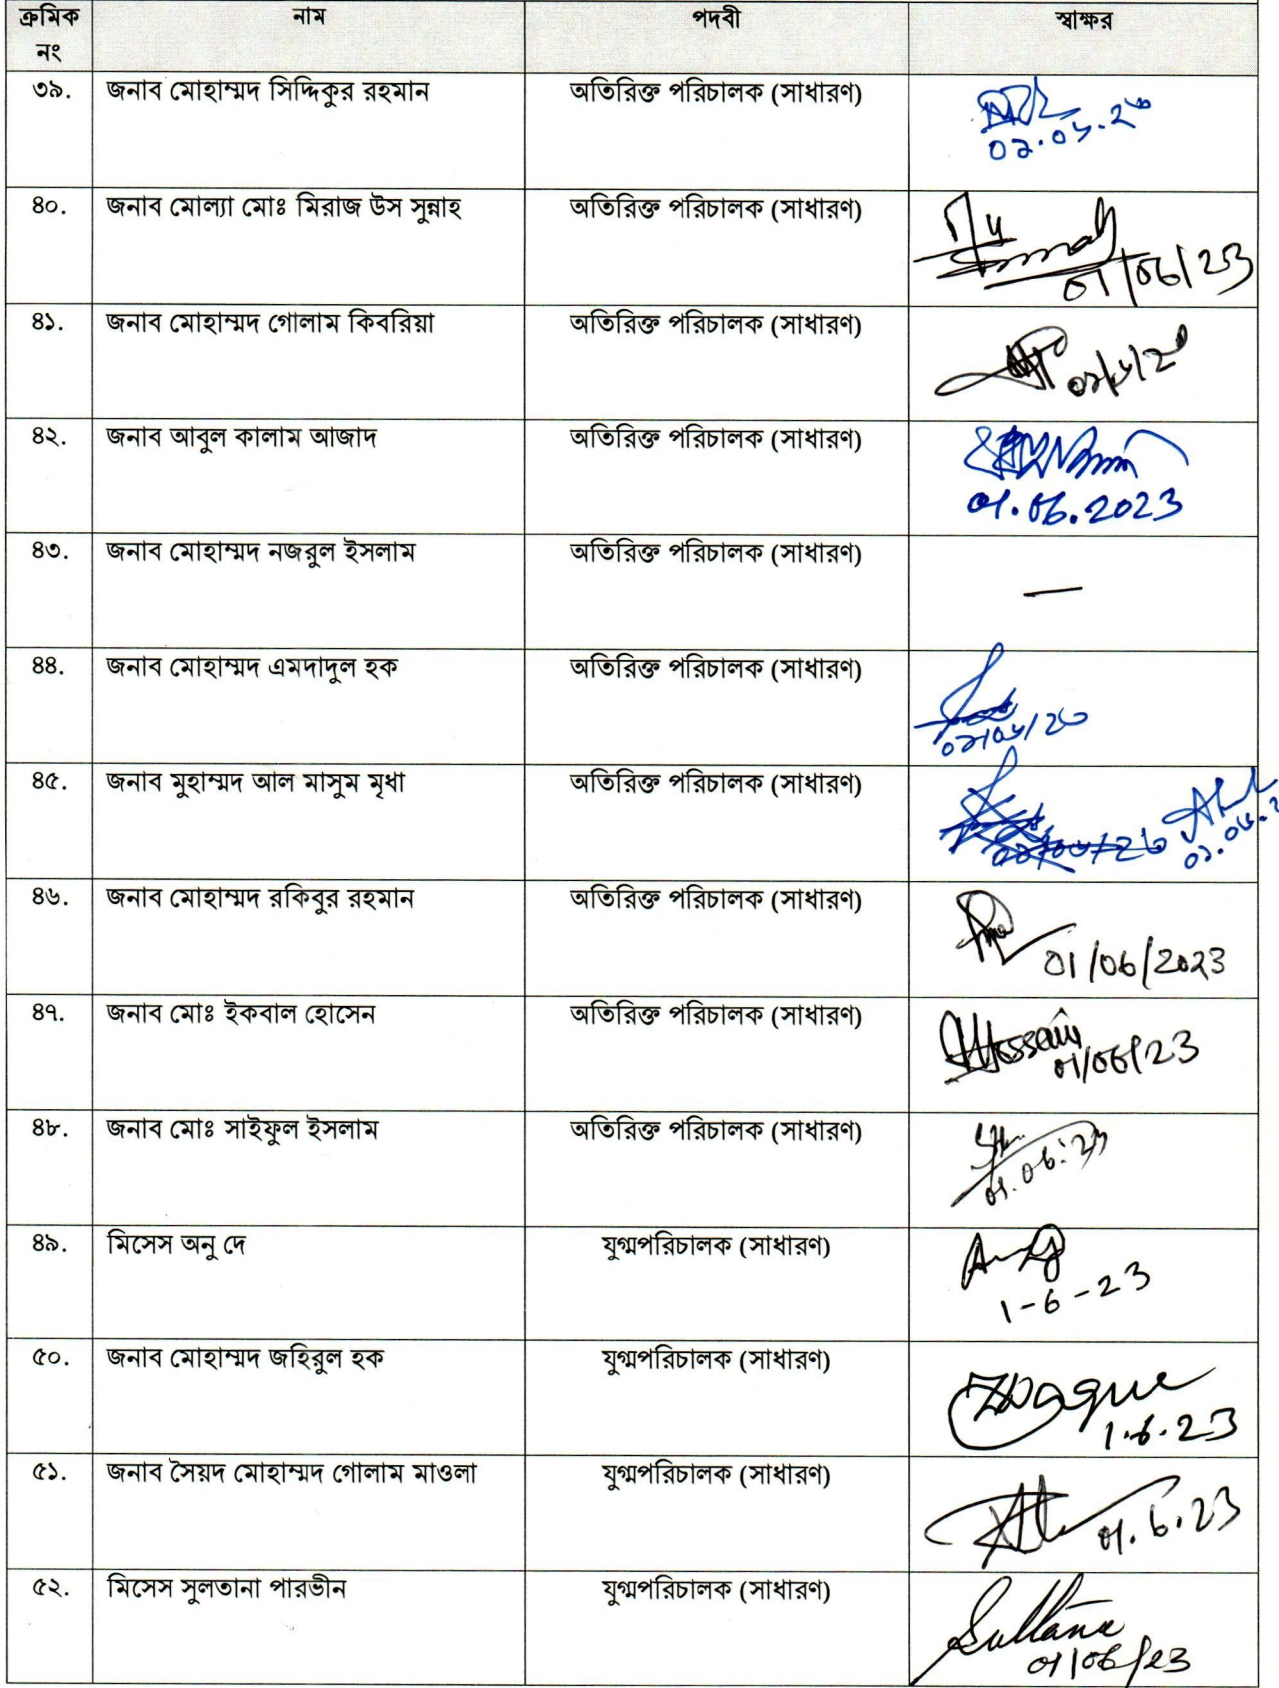 ক্রমিক নং নাম পদবী স্বাক্ষর
৩৯. জনাব মোহাম্মদ সিদ্দিকুর রহমান অতিরিক্ত পরিচালক (সাধারণ)
৪০. জনাব মোল্যা মোঃ মিরাজ উস সুন্নাহ অতিরিক্ত পরিচালক (সাধারণ)
01/06/23
৪১. জনাব মোহাম্মদ গোলাম কিবরিয়া অতিরিক্ত পরিচালক (সাধারণ)
৪২. জনাব আবুল কালাম আজাদ অতিরিক্ত পরিচালক (সাধারণ)
01.06.2023
৪৩. জনাব মোহাম্মদ নজরুল ইসলাম অতিরিক্ত পরিচালক (সাধারণ) —
৪৪. জনাব মোহাম্মদ এমদাদুল হক অতিরিক্ত পরিচালক (সাধারণ)
০১/০৬/২৩
৪৫. জনাব মুহাম্মদ আল মাসুম মৃধা অতিরিক্ত পরিচালক (সাধারণ)
৪৬. জনাব মোহাম্মদ রকিবুর রহমান অতিরিক্ত পরিচালক (সাধারণ)
01/06/2023
৪৭. জনাব মোঃ ইকবাল হোসেন অতিরিক্ত পরিচালক (সাধারণ) Hossain
01/06/23
৪৮. জনাব মোঃ সাইফুল ইসলাম অতিরিক্ত পরিচালক (সাধারণ)
01.06.23
৪৯. মিসেস অনু দে যুগ্মপরিচালক (সাধারণ)
1-6-23
৫০. জনাব মোহাম্মদ জহিরুল হক যুগ্মপরিচালক (সাধারণ)
1.6.23
৫১. জনাব সৈয়দ মোহাম্মদ গোলাম মাওলা যুগ্মপরিচালক (সাধারণ)
01.6.23
৫২. মিসেস সুলতানা পারভীন যুগ্মপরিচালক (সাধারণ) Sultana
01/06/23